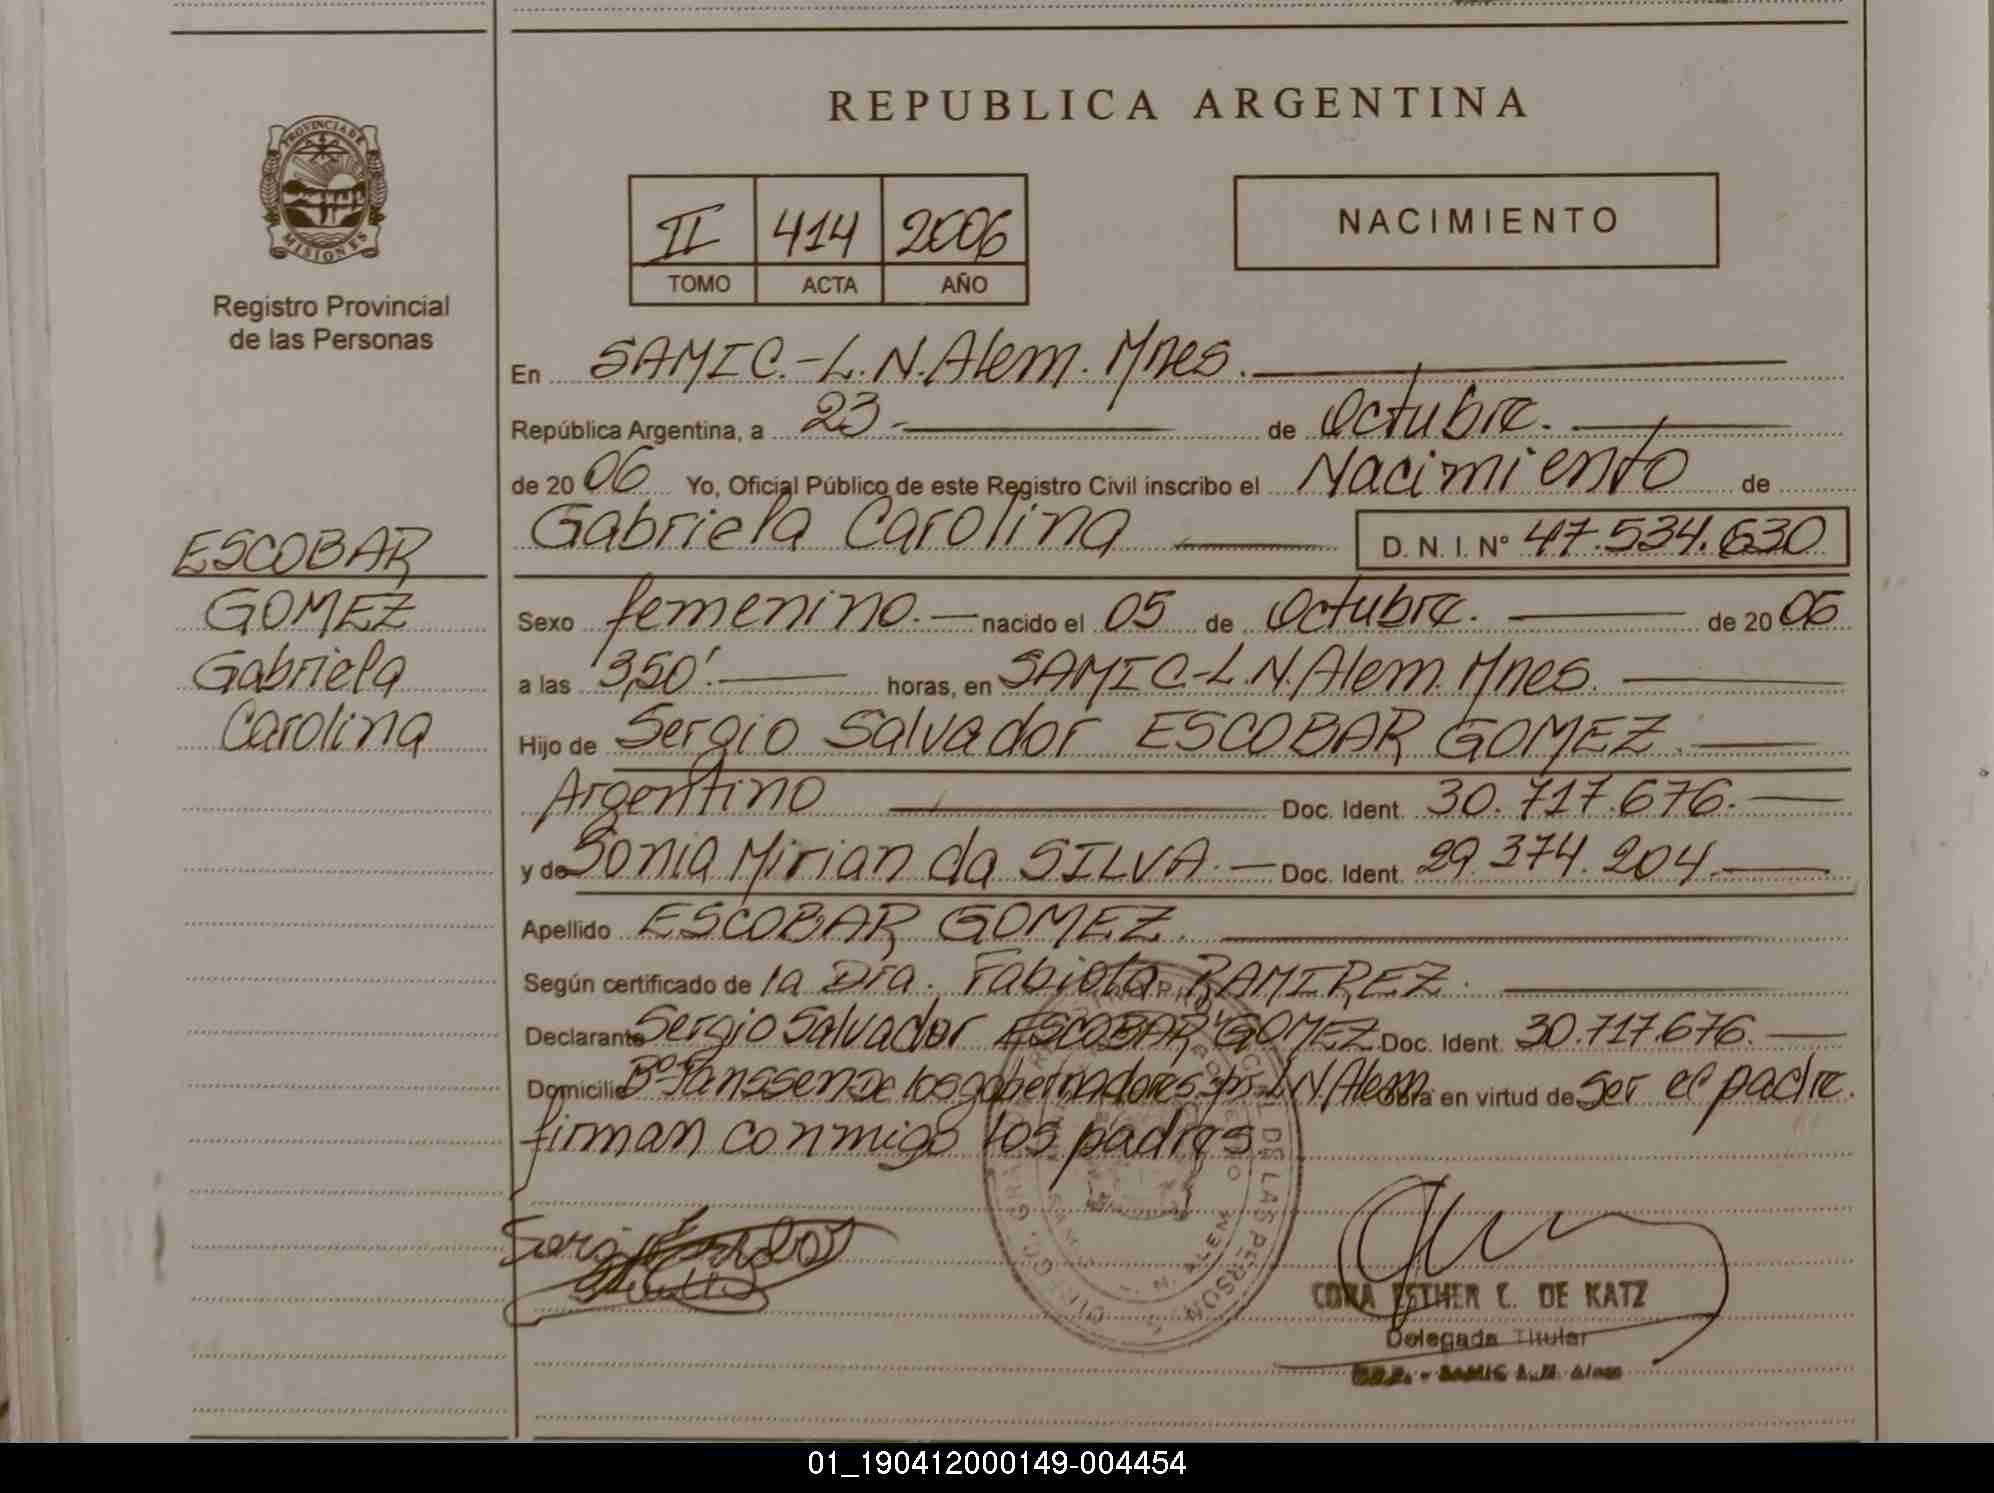 REPUBLICA ARGENTINA
PROVINCIA DE
MISIONES
Registro Provincial
de las Personas
II 414 2006
TOMO ACTA AÑO
NACIMIENTO
En SAMIC.-L.N.Alem. Mnes.
República Argentina, a 23 de Octubre.
de 2006 Yo, Oficial Público de este Registro Civil inscribo el Nacimiento de
Gabriela Carolina D. N. I. Nº 47.534.630
ESCOBAR
GOMEZ
Gabriela
Carolina
Sexo femenino. nacido el 05 de Octubre. de 2006
a las 3,50'. horas, en SAMIC-L.N.Alem. Mnes.
Hijo de Sergio Salvador ESCOBAR GOMEZ.
Argentino Doc. Ident. 30.717.676.
y de Sonia Mirian da SILVA. Doc. Ident. 29.374.204.
Apellido ESCOBAR GOMEZ.
Según certificado de la Dra. Fabiola RAMIREZ.
Declarante Sergio Salvador ESCOBAR GOMEZ Doc. Ident. 30.717.676.
Domicilio Bº Janssen de los gobernadores s/nº L.N.Alem. Obra en virtud de ser el padre.
firman conmigo los padres.
DE LAS PERSONAS
N. ALEM
CORA ESTHER C. DE KATZ
Delegada Titular
01_190412000149-004454